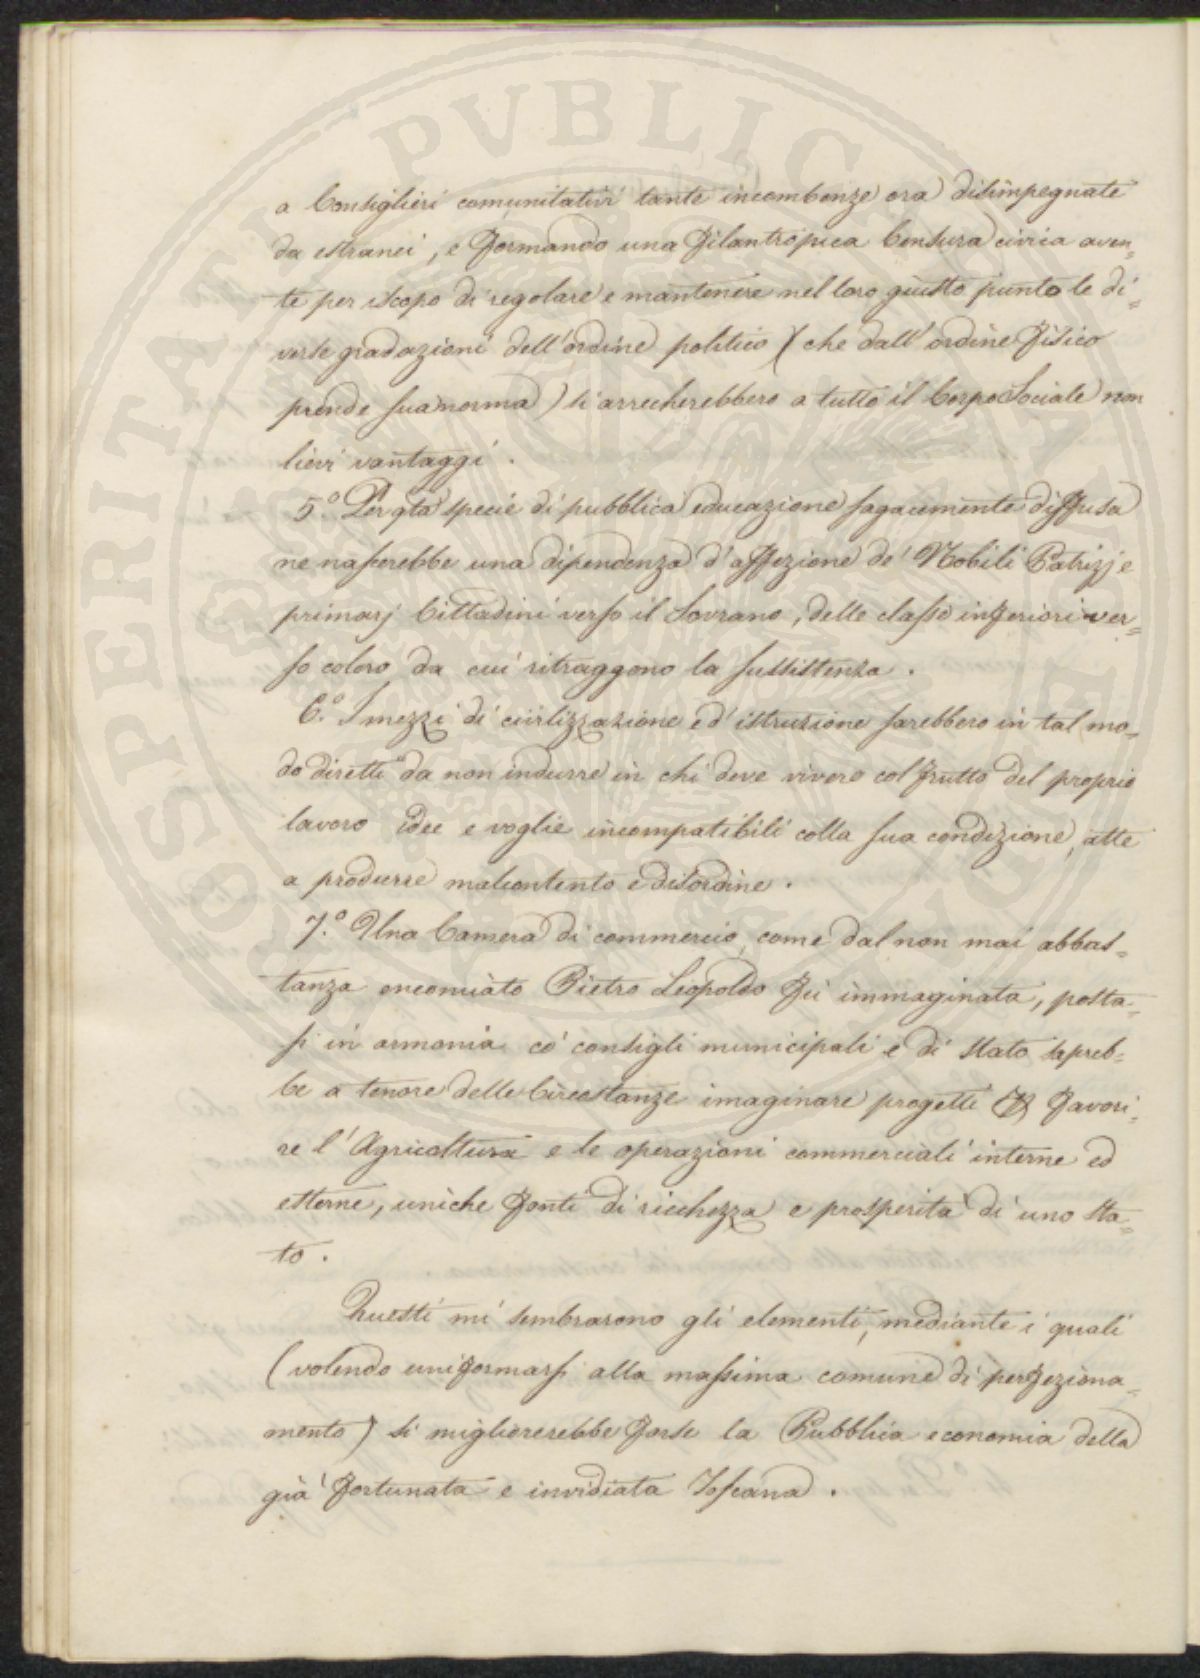 a Consiglieri comunitativi tante incombenze ora disimpegnate
da estranei, e formando una filantropica Censura civica aven=
te per iscopo di regolare e mantenere nel loro giusto punto le di=
verse gradazioni dell'ordine politico (che dall'ordine fisico
prende sua norma) si arrecherebbero a tutto il Corpo Sociale non
lievi vantaggi.
5.° Per qta specie di pubblica educazione sagacemente diffusa
ne nascerebbe una dipendenza d'affezione de' Nobili Patrizj e
primarj Cittadini verso il Sovrano, delle classe inferiori ver=
so coloro da cui ritraggono la sussistenza.
6.° I mezzi di civilizzazione ed' istruzione sarebbero in tal mo=
do diretti da non indurre in chi deve vivere col frutto del proprio
lavoro idee e voglie incompatibili colla sua condizione, atte
a produrre malcontento e disordine.
7.° Una Camera di commercio, come dal non mai abbas=
tanza encomiato Pietro Leopoldo fù immaginata, posta=
si in armonia co' consigli municipali e di stato sapreb=
be a tenore delle Circostanze imaginare progetti favori=
re l'Agricoltura e le operazioni commerciali interne ed
esterne, uniche fonti di ricchezza e prosperità di uno sta=
to.
Questi mi sembrarono gli elementi, mediante i quali
(volendo uniformarsi alla massima comune di perfeziona=
mento) si migliorerebbe forse la Pubblica economia della
già fortunata e invidiata Toscana.
PROSPERITATI PUBLICAE